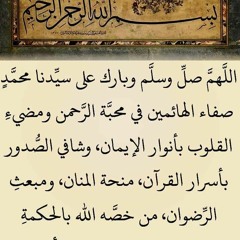 بسم الله الرحمن الرحيم
اللّهمَّ صلِّ وسلَّم وبارك على سيِّدنا محمَّدٍ
صفاء الهائمين في محبَّة الرَّحمن ومضيءِ
القلوب بأنوار الإيمان، وشافي الصُّدور
بأسرار القرآن، منحة المنان، ومبعثِ
الرِّضوان، من خصَّه الله بالحكمةِ